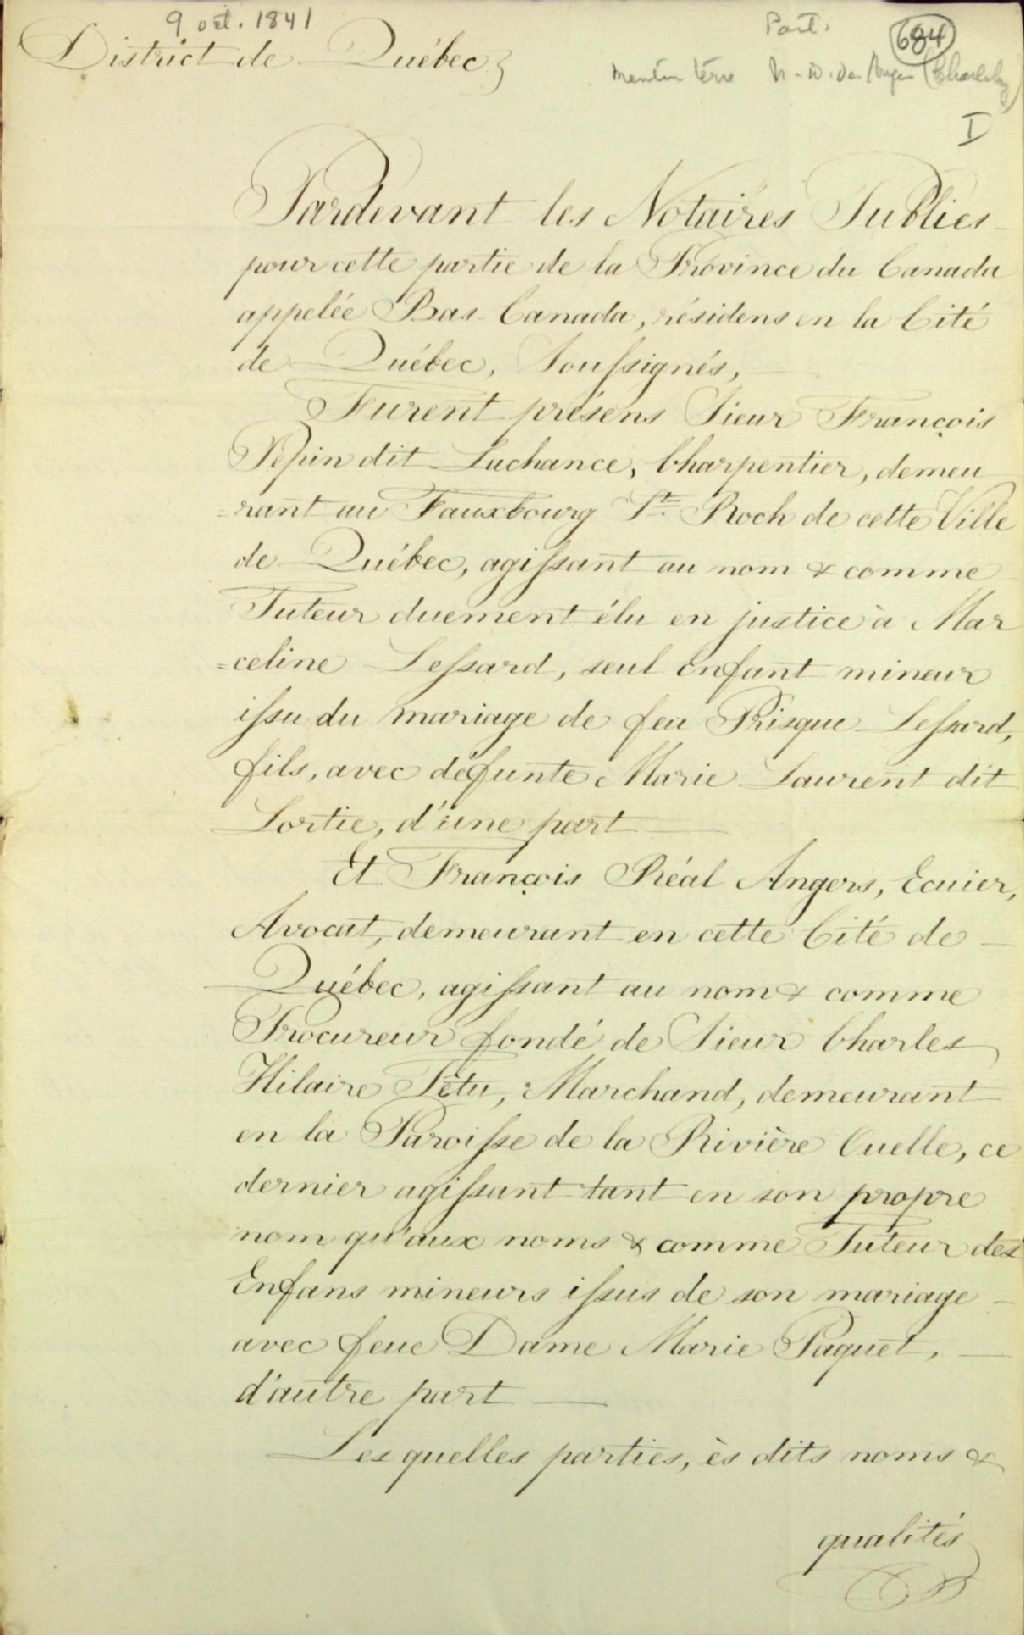 9 oct. 1841
Part.
684
District de Québec
terre N-D. des Anges (Charlesbg)
I
Pardevant les Notaires Publics
pour cette partie de la Province du Canada
appelée Bas-Canada, résidens en la Cité
de Québec, Soussignés,
Furent présens Sieur François
Pepin dit Lachance, Charpentier, demeu
=rant au Fauxbourg St. Roch de cette Ville
de Québec, agissant au nom & comme
Tuteur duement élu en justice à Mar
=celine Lessard, seul enfant mineur
issu du mariage de feu Prisque Lessard,
fils, avec défunte Marie Laurent dit
Lortie, d'une part
Et François Réal Angers, Ecuier,
Avocat, demeurant en cette Cité de
Québec, agissant au nom & comme
Procureur fondé de Sieur Charles
Hilaire Tétu, Marchand, demeurant
en la Paroisse de la Rivière Ouelle, ce
dernier agissant tant en son propre
nom qu'aux noms & comme Tuteur des
Enfans mineurs issus de son mariage
avec feue Dame Marie Paquet,
d'autre part
Lesquelles parties, ès dits noms &
qualités